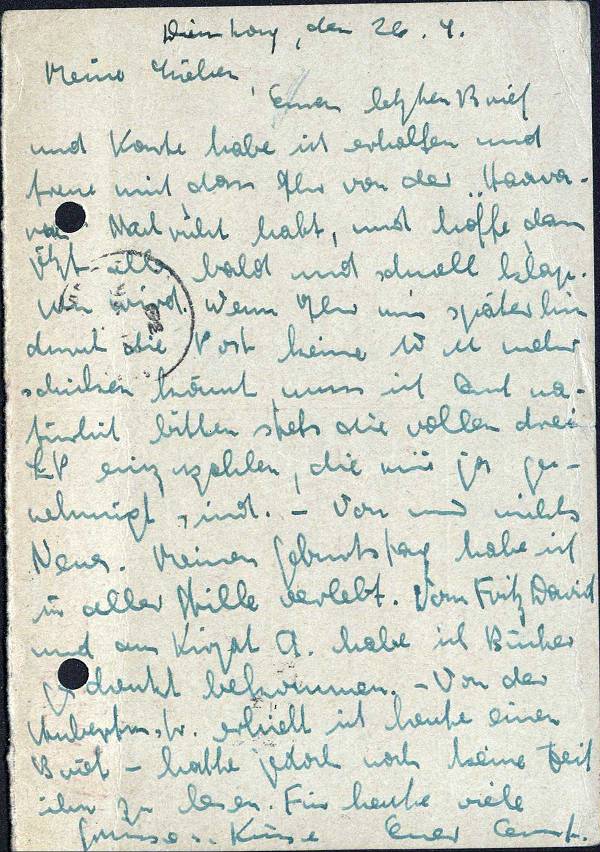 Dienstag, den 26. 4.
Meine Lieben,
Euren letzten Brief
und Karte habe ich erhalten und
freue mich, dass Ihr von der "Haava-
ra" Nachricht habt, und hoffe, dass
jetzt alles bald und schnell klap-
pen wird. Wenn Ihr mir späterhin
durch die Post keine 10 M mehr
schicken könnt, muss ich Euch na-
türlich bitten stets die vollen drei
LP einzuzahlen, die mir ja ge-
nehmigt sind. – Von mir nichts
Neues. Meinen Geburtstag habe ich
in aller Stille verlebt. Von Fritz David
und aus Kirjat A. habe ich Bücher
geschenkt bekommen. – Von der
str. erhielt ich heute einen
Brief – hatte jedoch noch keine Zeit
ihn zu lesen. Für heute viele
Grüsse u. Küsse Euer